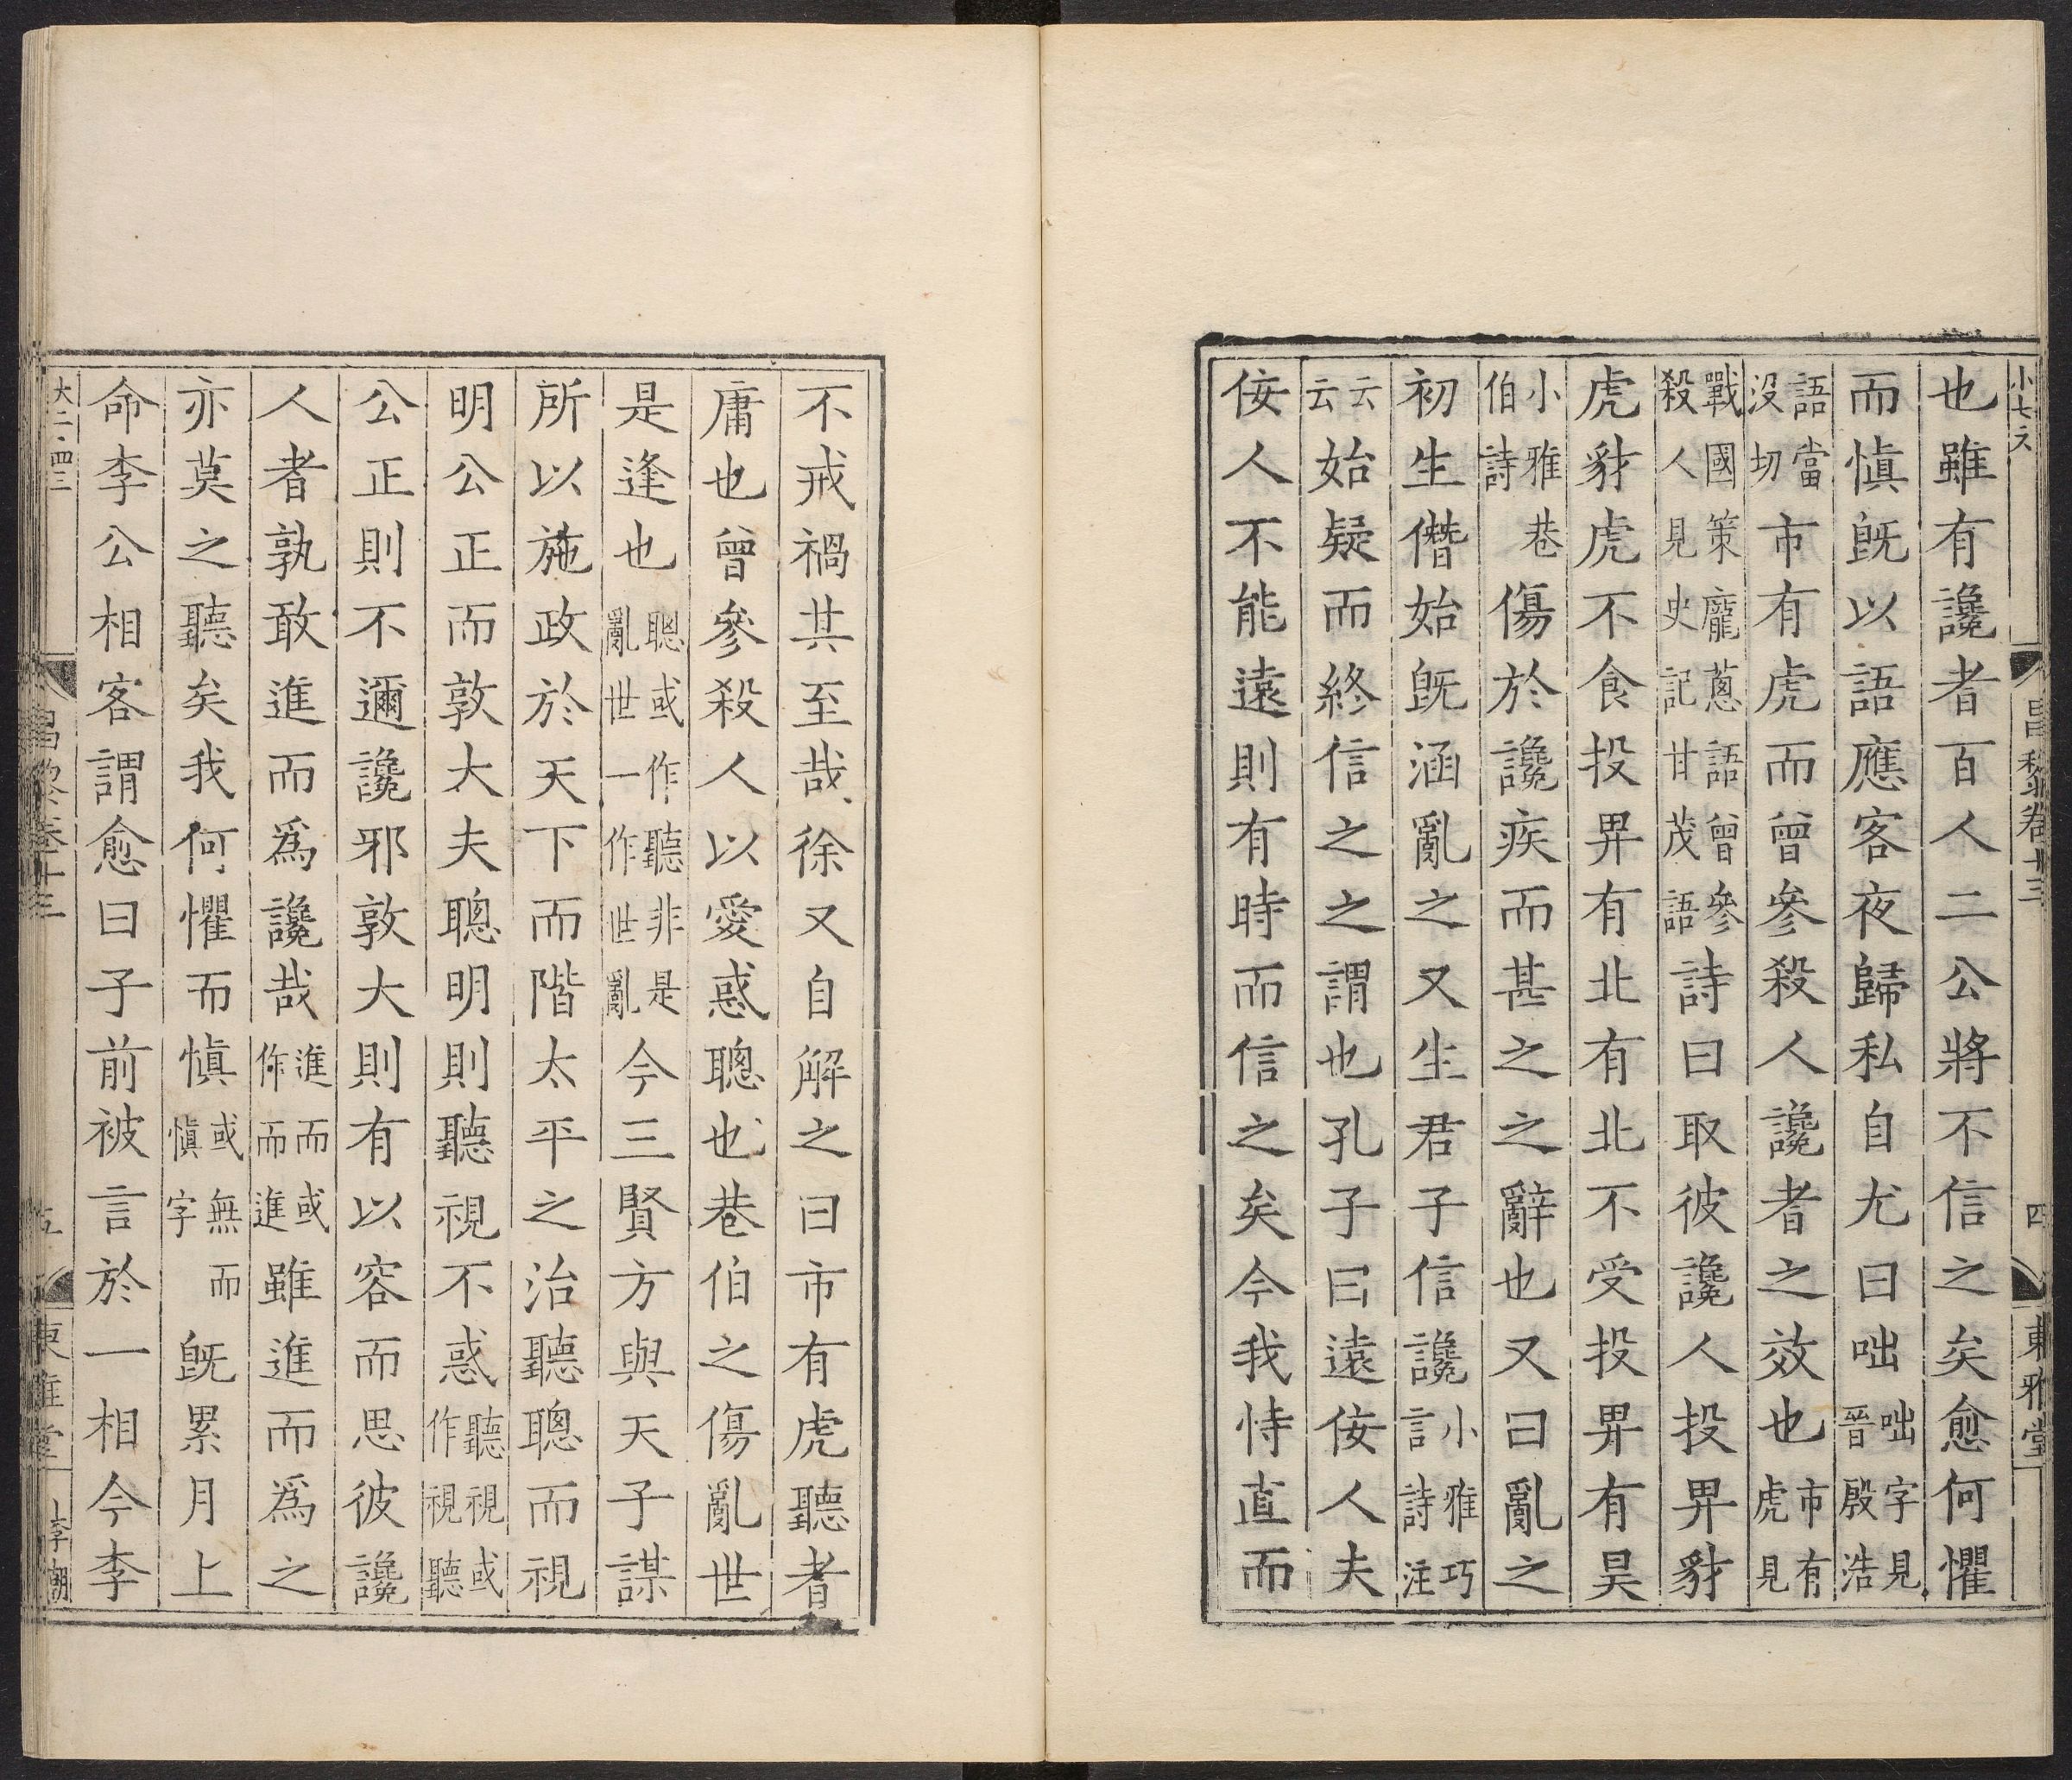 昌黎卷十三 四 東雅堂
也雖有讒者百人二公將不信之矣愈何懼
而愼旣以語應客夜歸私自尤曰咄咄字見晉殷浩
語當沒切市有虎而曾參殺人讒者之效也市有虎見
戰國策龐蔥語曾參殺人見史記甘茂語詩曰取彼讒人投畀豺
虎豺虎不食投畀有北有北不受投畀有昊
小雅巷伯詩傷於讒疾而甚之之辭也又曰亂之
初生僭始旣涵亂之又生君子信讒小雅巧言詩注
云云始疑而終信之之謂也孔子曰遠佞人夫
佞人不能遠則有時而信之矣今我恃直而
不戒禍其至哉徐又自解之曰市有虎聽者
庸也曾參殺人以愛惑聰也巷伯之傷亂世
是逢也聰或作聽非是亂世一作世亂今三賢方與天子謀
所以施政於天下而階太平之治聽聰而視
明公正而敦大夫聰明則聽視不惑聽視或作視聽
公正則不邇讒邪敦大則有以容而思彼讒
人者孰敢進而爲讒哉進而或作而進雖進而爲之
亦莫之聽矣我何懼而愼或無而愼字旣累月上
命李公相客謂愈曰子前被言於一相今李
昌黎卷十三 五 東雅堂 李潮